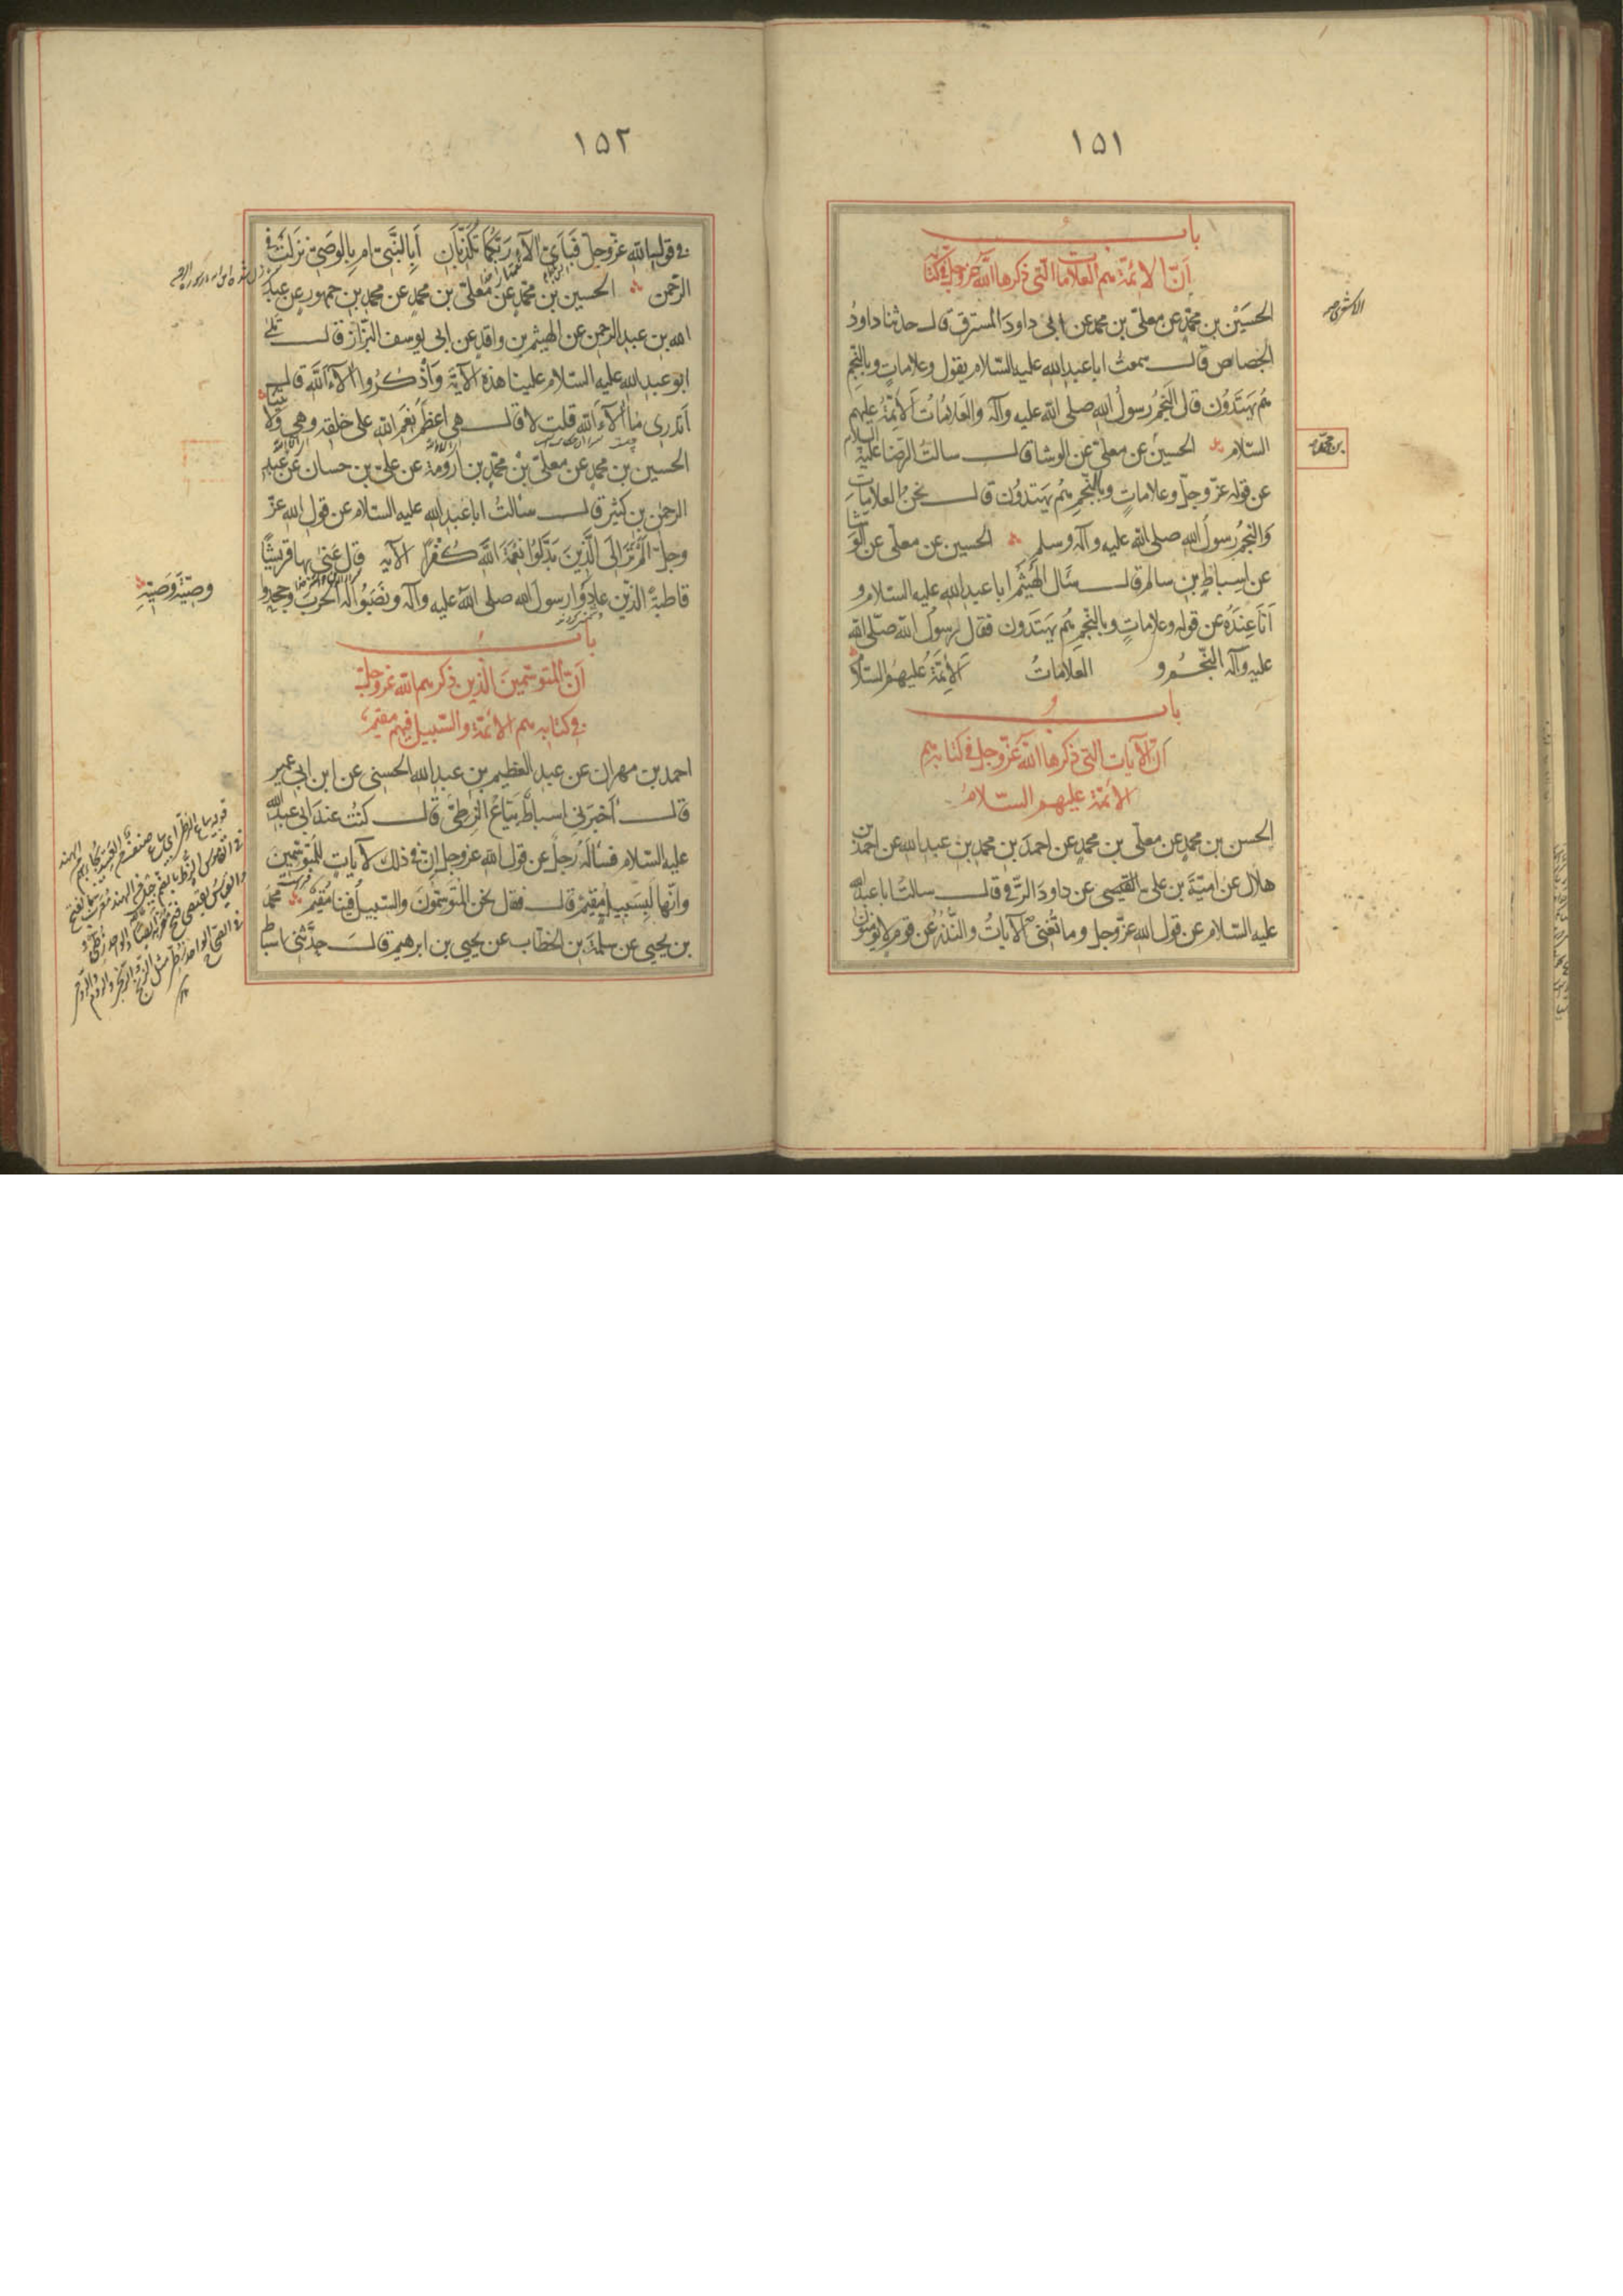 ١٥١
باب
أنّ الائمّة هم العلامات التي ذكرها الله عزوجل في كتابه
الحسين بن محمّد عن معلّى بن محمد عن ابى داود المسترق قال حدثنا داود
الجصاص قال سمعت ابا عبد الله عليه السّلام يقول وعلامات وبالنّجم
هم يهتدون قال النّجم رسول الله صلى الله عليه وآله والعلامات الأئمّة عليهم
السّلام الحسين عن معلّى عن الوشا قال سالت الرّضا عليه السلام
عن قوله عزّ وجلّ وعلامات وبالنّجم هم يهتدون قال نحن العلامات
والنّجم رسول الله صلى الله عليه وآله وسلم الحسين عن معلى عن الوشا
عن اسباط بن سالم قال سال الهيثم ابا عبد الله عليه السلام و
انا عنده عن قوله وعلامات وبالنّجم هم يهتدون فقال رسول الله صلّى الله
عليه وآله النّجم و العلامات الأئمّة عليهم السّلام
باب
انّ الآيات التي ذكرها الله عزّوجل في كتابه هم
الأئمّة عليهم السّلام
الحسن بن محمد عن معلّى بن محمد عن احمد بن محمد بن عبد الله عن احمد بن
هلال عن اميّة بن على القيسى عن داود الرّقى قال سالت ابا عبد الله
عليه السّلام عن قول الله عزّوجل وما تغنى الآيات والنّذر عن قوم لا يؤمنون
بن محمّد
١٥٢
فى قول الله عزّوجلّ فبأىّ آلاء ربّكما تكذّبان أبالنّبىّ ام بالوصىّ نزلت فى
الرّحمن الحسين بن محمّد عن معلّى بن محمد عن محمد بن جمهور عن عبد
الله بن عبد الرحمن عن الهيثم بن واقد عن ابى يوسف البزّاز قال تلى
ابو عبد الله عليه السّلام علينا هذه الآية واذكروا آلاء الله قال
أتدرى ما آلاء الله قلت لا قال هى اعظم نعم الله على خلقه وهى ولايتنا
الحسين بن محمد عن معلّى بن محمّد بن أرومة عن علىّ بن حسان عن عبد
الرحمن بن كثير قال سالت ابا عبد الله عليه السلام عن قول الله عزّ
وجلّ الم تر الى الّذين بدّلوا نعمة الله كفرا الآيه قال عنى بها قريشا
قاطبة الذّين عادوا رسول الله صلى الله عليه وآله ونصبوا له الحرب وجحدوا
وصيّة وصيّه
باب
أنّ المتوسّمين الّذين ذكرهم الله عزوجلّ
فى كتابه هم الائمّة والسّبيل فيهم مقيم
احمد بن مهران عن عبد العظيم بن عبد الله الحسنى عن ابن ابى عمير
قال أخبرنى اسباط بيّاع الزطّى قال كنت عند ابى عبد الله
عليه السّلام فسأله رجل عن قول الله عزوجل انّ فى ذلك لآيات للمتوسّمين
وانّها لبسبيل مقيم قال فقال نحن المتوسّمون والسّبيل فينا مقيم محمد
بن يحيى عن سلمة بن الخطّاب عن يحيى بن ابرهيم قال حدّثنى اسباط